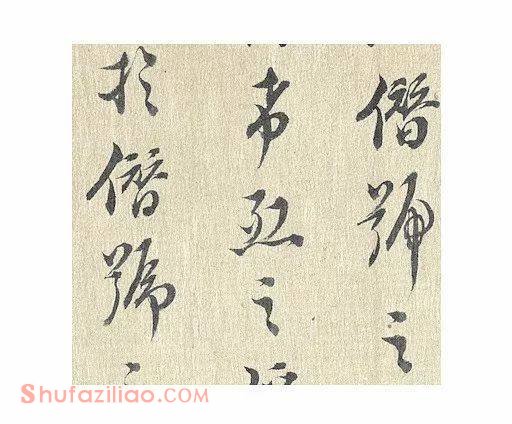 僭號之
之
於僭號
Shufaziliao.COM